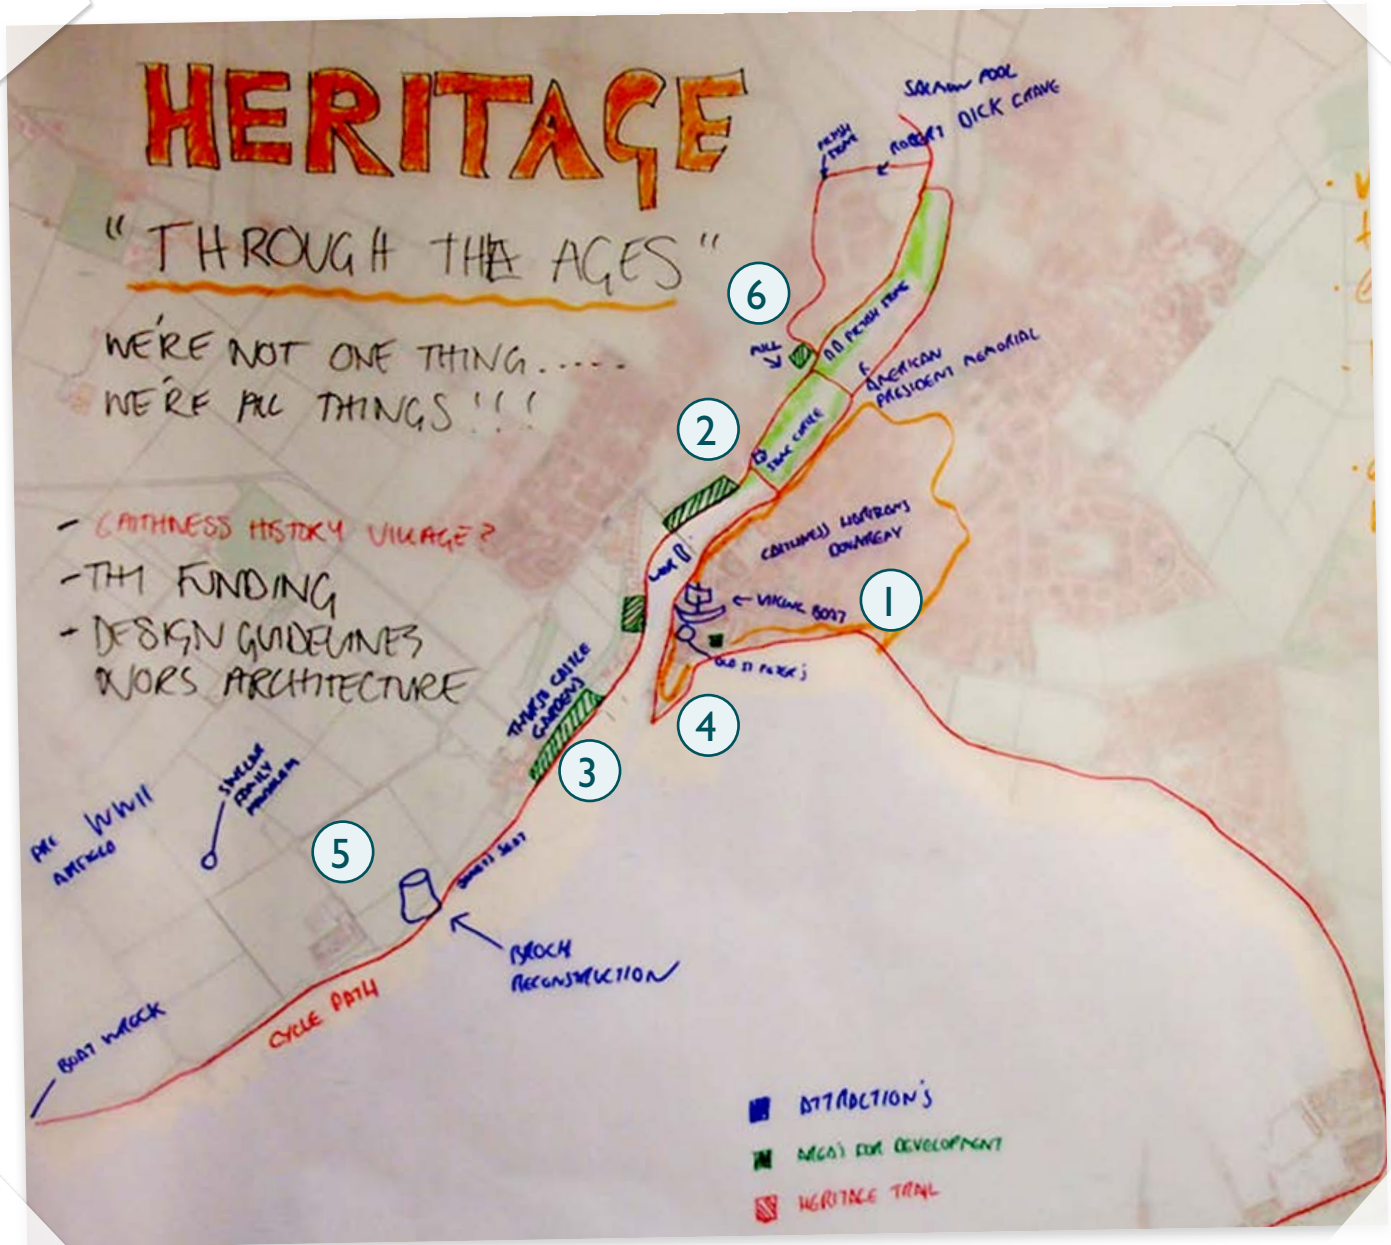 HERITAGE
"THROUGH THA AGES"
WE'RE NOT ONE THING.....
WE'RE ALL THINGS!!!
- CAITHNESS HISTORY VILLAGE?
- THI FUNDING
- DESIGN GUIDELINES
NORS ARCHITECTURE
SALMON POOL
ROBERT DICK CRAVE
6
MILL
AMERICAN
PRESIDENT MEMORIAL
2
STONE CIRCLE
CAITHNESS HORIZONS
DOUNREAY
VIKING BOAT
1
OLD ST PETER'S
THURSO CASTLE
GARDENS
4
3
PRE WWII
AIRFIELD
SINCLAIR
FAMILY
5
BROCH
RECONSTRUCTION
CYCLE PATH
BOAT WRECK
ATTRACTION'S
AREA'S FOR DEVELOPMENT
HERITAGE TRAIL